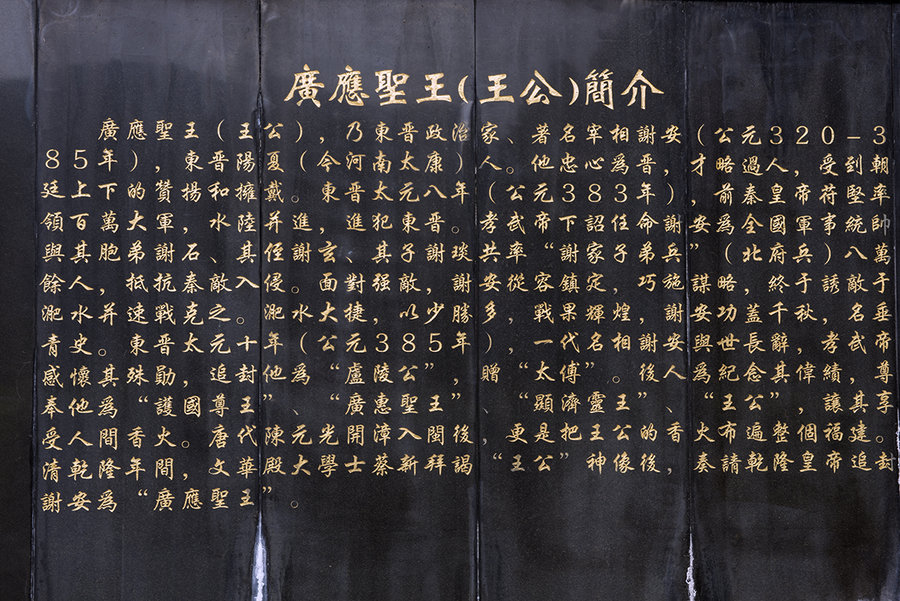 廣應聖王(王公)簡介
廣應聖王(王公),乃東晋政治家、著名宰相謝安(公元320-3
85年),東晋陽夏(今河南太康)人。他忠心為晋,才略過人,受到朝
廷上下的贊揚和擁戴。東晋太元八年(公元383年),前秦皇帝苻堅率
領百萬大軍,水陸并進,進犯東晋。孝武帝下詔任命謝安為全國軍事統帥
與其胞弟謝石、其侄謝玄、其子謝琰共率“謝家子弟兵”(北府兵)八萬
餘人,抵抗秦敵入侵。面對强敵,謝安從容鎮定,巧施謀略,終于誘敵于
淝水并速戰克之。淝水大捷,以少勝多,戰果輝煌,謝安功蓋千秋,名垂
青史。東晋太元十年(公元385年),一代名相謝安與世長辭,孝武帝
感懷其殊勛,追封他為“盧陵公”,贈“太傅”。後人為紀念其偉績,尊
奉他為“護國尊王”、“廣惠聖王”、“顯濟靈王”、“王公”,讓其享
受人間香火。唐代陳元光開漳入閩後,更是把王公的香火布遍整個福建。
清乾隆年間,文華殿大學士蔡新拜謁“王公”神像後,奏請乾隆皇帝追封
謝安為“廣應聖王”。